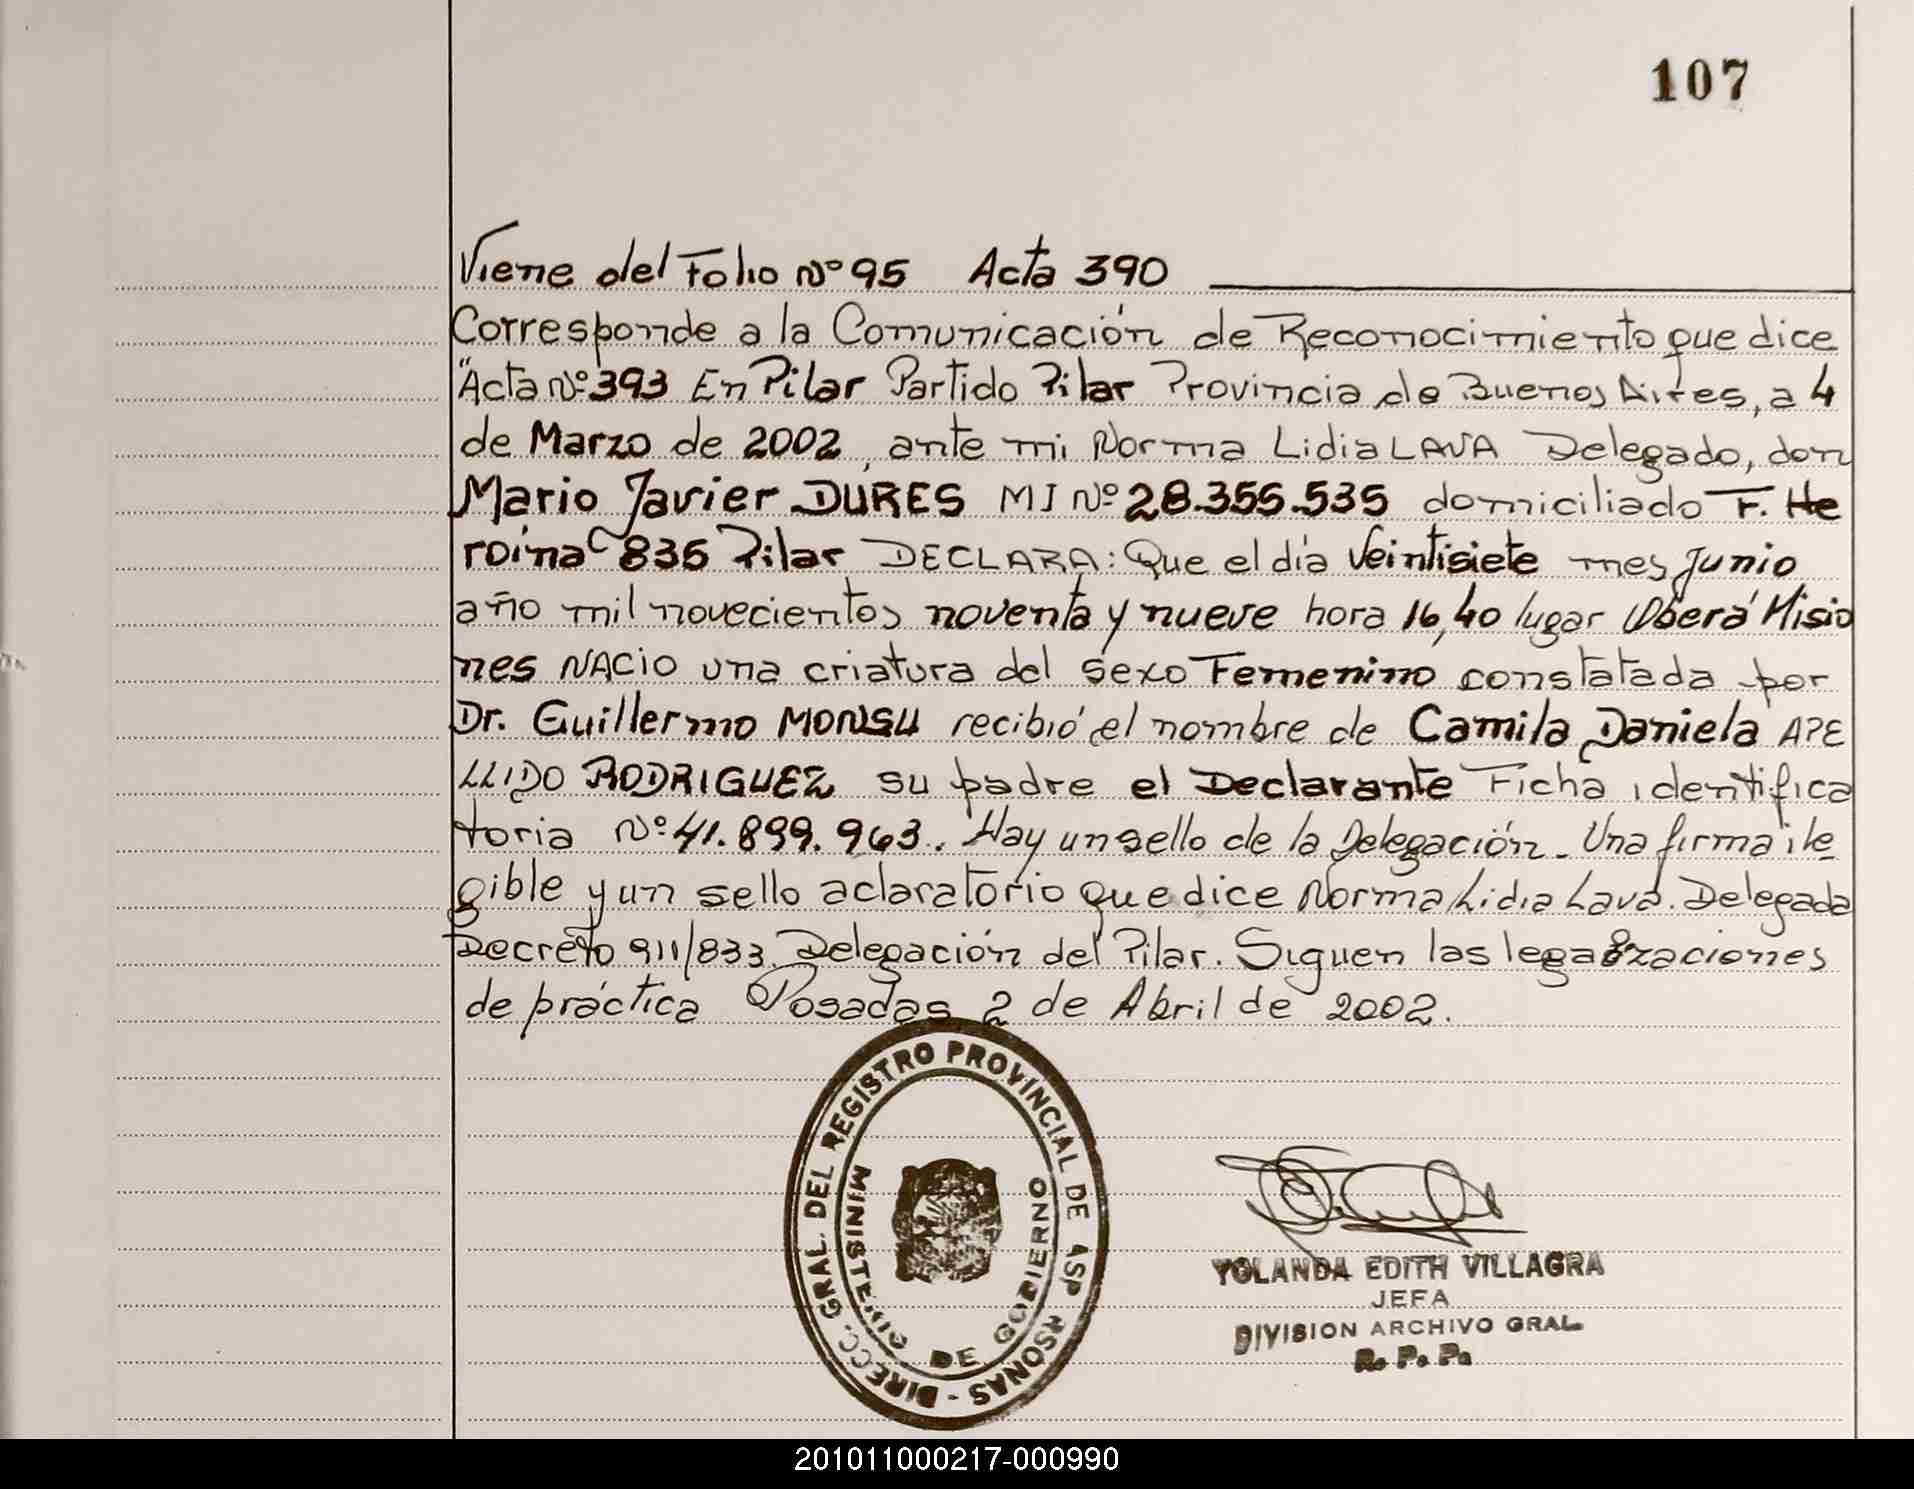 107
Viene del Folio Nº 95 Acta 390
Corresponde a la Comunicación de Reconocimiento que dice
"Acta Nº 393 En Pilar Partido Pilar Provincia de Buenos Aires, a 4
de Marzo de 2002, ante mi Norma Lidia LAVA Delegado, don
Mario Javier DURES MI Nº 28.355.535 domiciliado F. He
roína 835 Pilar DECLARA: Que el día Veintisiete mes Junio
año mil novecientos noventa y nueve hora 16,40 lugar Oberá Misio
nes NACIO una criatura del sexo Femenino constatada por
Dr. Guillermo MONSU recibió el nombre de Camila Daniela APE
LLIDO RODRIGUEZ su padre el Declarante Ficha identifica
toria Nº 41.899.963. Hay un sello de la Delegación. Una firma ile
gible y un sello aclaratorio que dice Norma Lidia Lava. Delegada
Decreto 911/833. Delegación del Pilar. Siguen las legalizaciones
de práctica Posadas 2 de Abril de 2002.
DIRECC. GRAL. DEL REGISTRO PROVINCIAL DE
MINISTERIO DE GOBIERNO
YOLANDA EDITH VILLAGRA
JEFA
DIVISION ARCHIVO GRAL.
R. P. P.
201011000217-000990